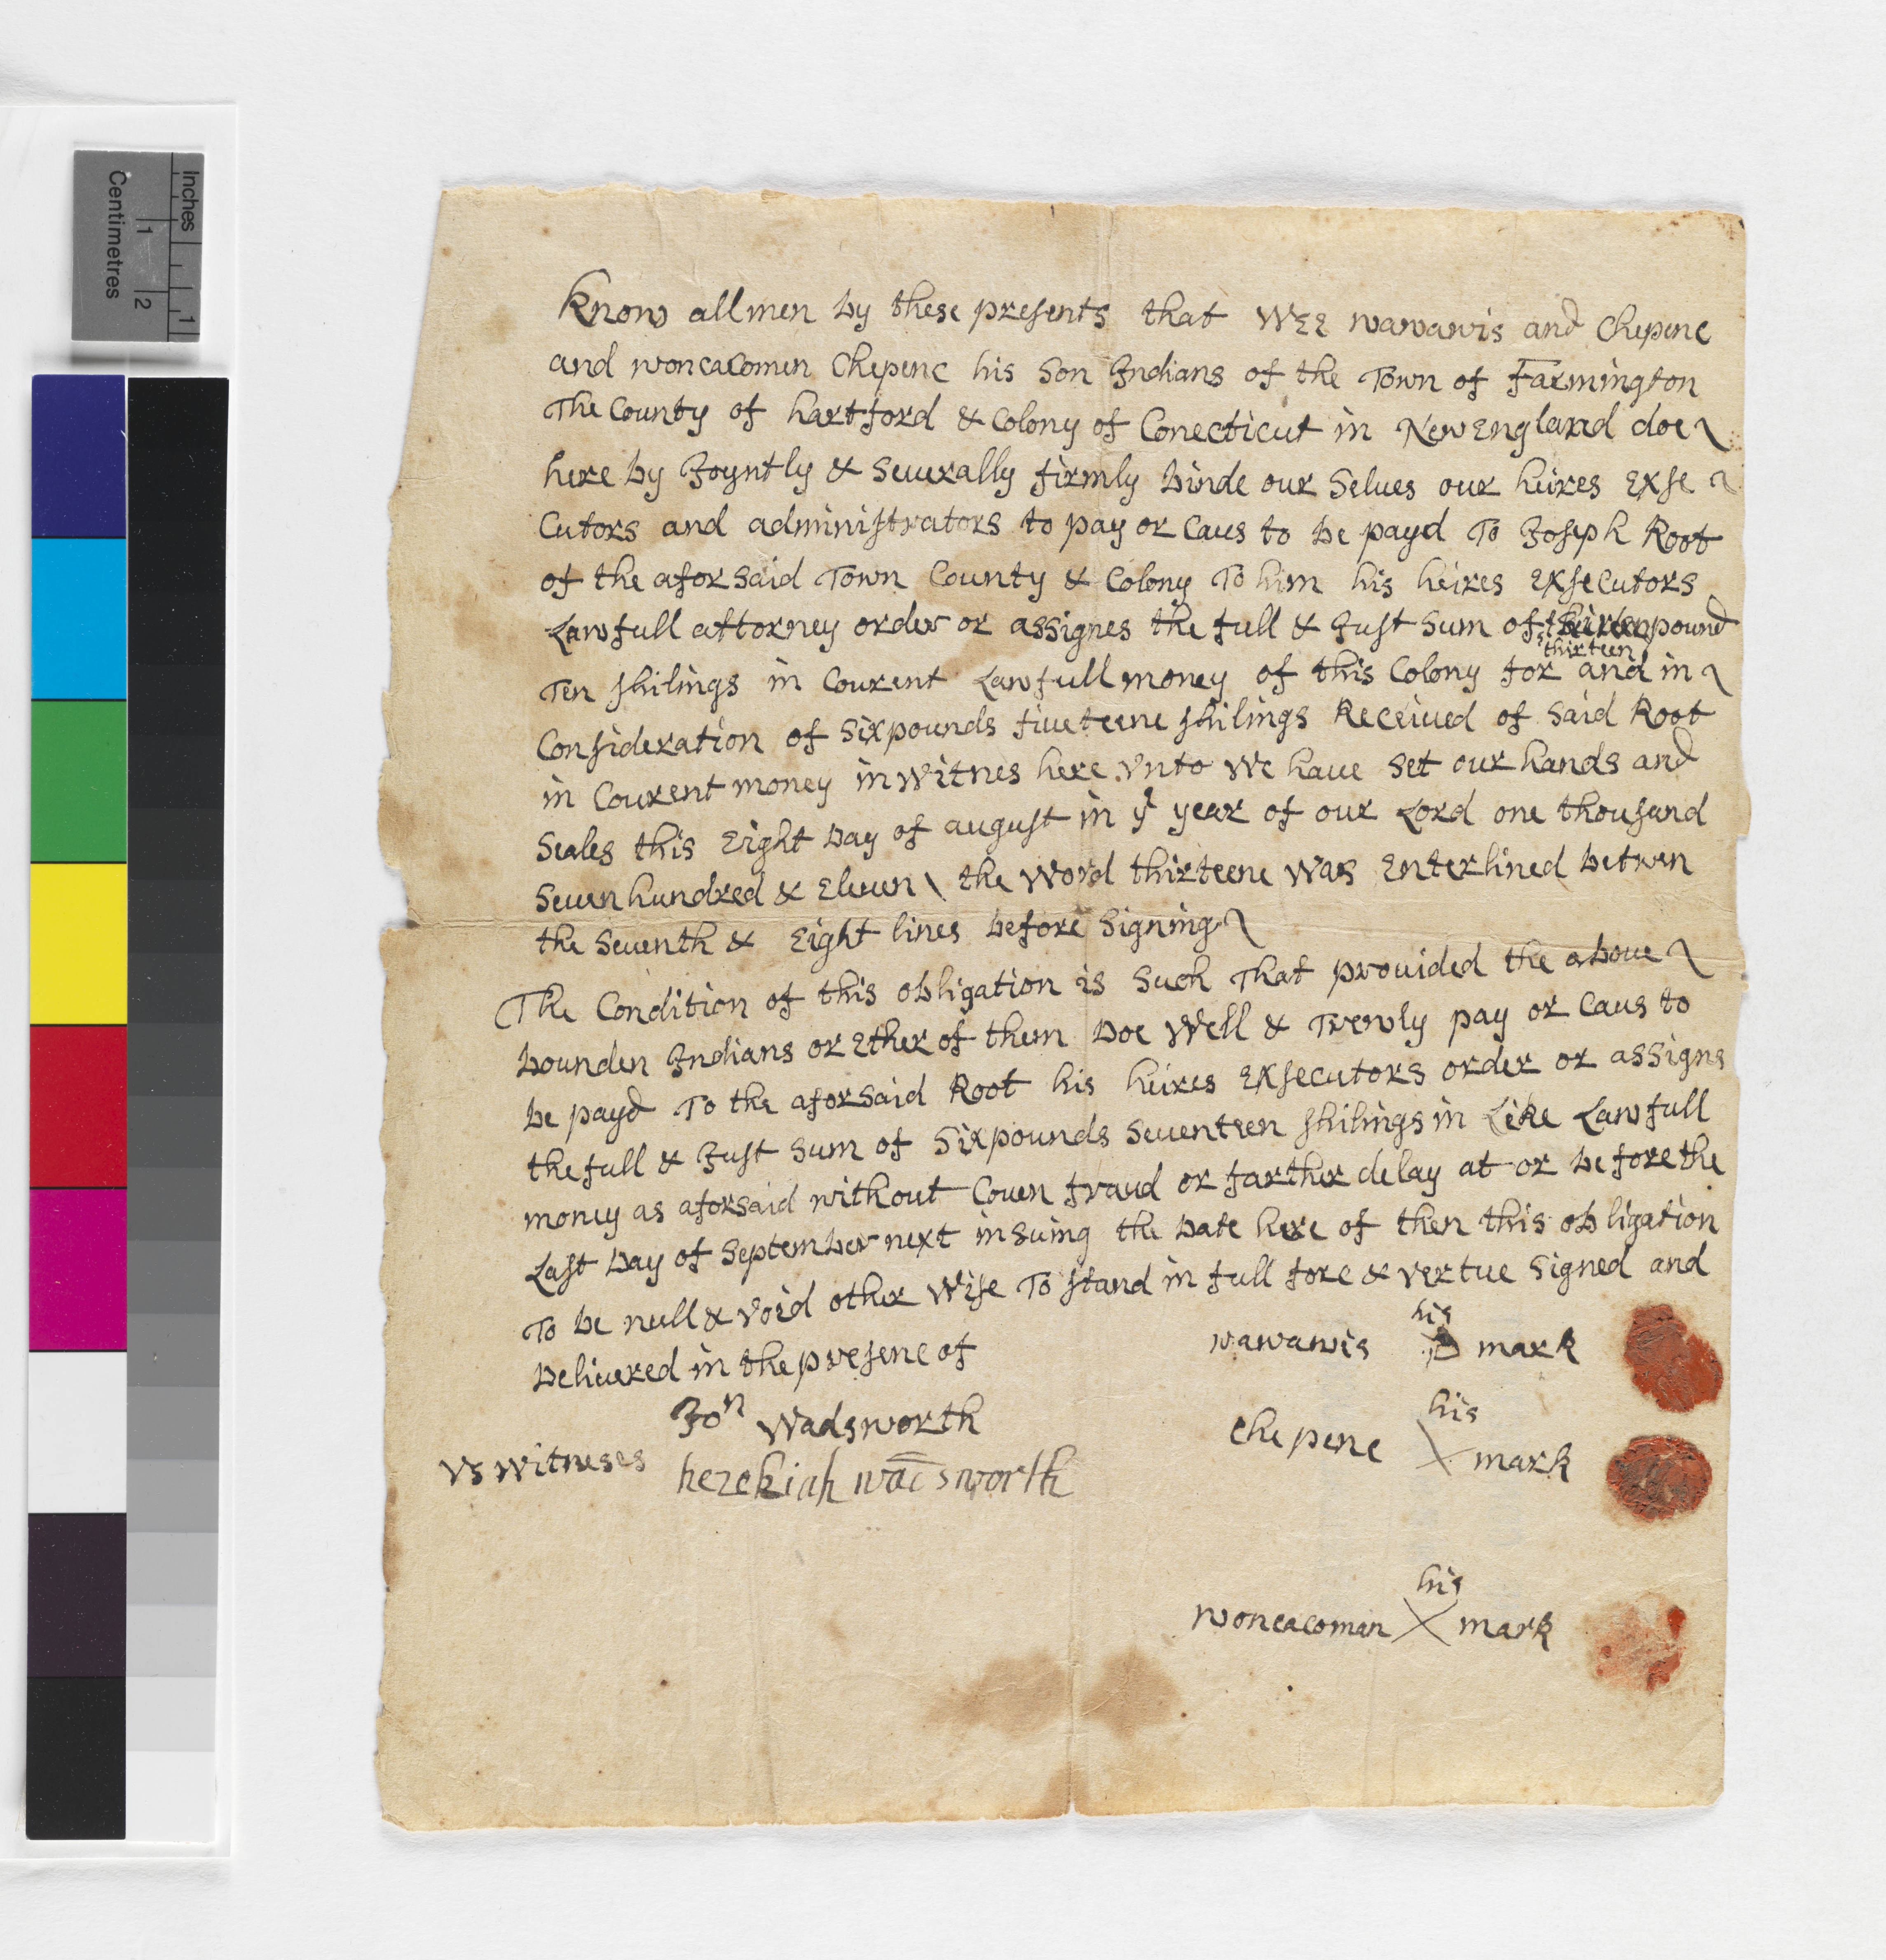 Inches
1
Centimetres
1
2
Know all men by these presents that WEE wawawis and Chepenc
and woncacomen Chepenc his Son Indians of the Town of Farmington
The County of hartford & Colony of Conecticut in New England doe
here by Joyntly & Severally firmly binde our Selves our heires Exse
Cutors and administrators to pay or Caus to be payd To Joseph Root
of the aforsaid Town County & Colony To him his heires Exsecutors
Lawfull attorney order or assignes the full & Just Sum of pound
thirteen
Ten shilings in Courent Lawfull money of this Colony for and in
Consideration of Six pounds fiveteene shilings Received of Said Root
in Courent money in witnes here vnto We have Set our hands and
Seales this Eight Day of august in ye year of our Lord one thousand
Seven hundred & Eleven the Word thirteene Was Enterlined betwen
the Seventh & Eight lines before Signing
The Condition of this obligation is Such That provided the above
bounden Indians or Ether of them Doe Well & Trewly pay or Caus to
be payd To the aforsaid Root his heires Exsecutors order or assigns
the full & Just Sum of Six pounds Seventeen shilings in Like Lawfull
money as aforsaid without Coven fraud or farther delay at or before the
Last Day of September next insuing the Date here of then this obligation
To be null & void other Wise To stand in full forc & vertue Signed and
Delivered in the presenc of
wawawis his mark
Jon Wadsworth
chepenc his mark
vs witneses
hezekiah wadsworth
woncacoman his mark